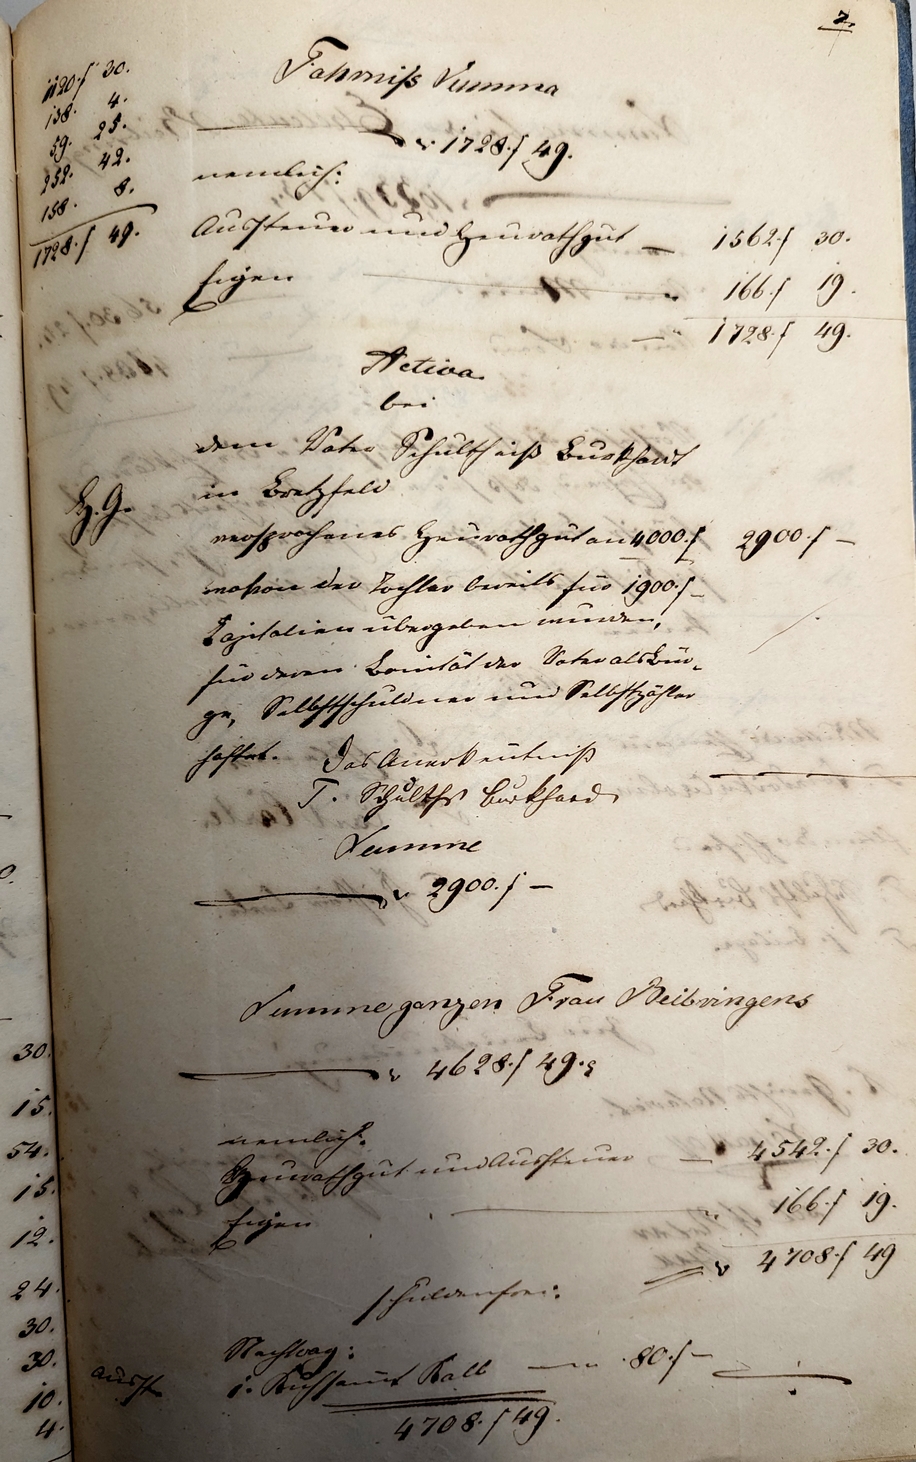 7.
1120.f 30.
138. 4.
59. 25.
252. 42.
158. 8.
1728.f 49.
Fahrniß Summa
1728.f 49.
nemlich:
Aussteuer und Heurathgut — 1562.f 30.
Eigen 166.f 19.
1728.f 49.
Activa
bei
dem Vater Schultheiß Burkhardt
in Bretzfeld
H.G.
versprochenes Heurathgut an 4000.f 2900.f —
woran der Tochter bereits für 1900.f —
Kapitalien übergeben wurden,
für deren Bonität der Vater als Bür-
ge, Selbstschuldner und Selbstzahler
haftet. Das Anerkentniß
T. Schulths Burkhard
Summe
2900.f —
Summe ganzen Frau Beibringens
4628.f 49.
nemlich:
Heurathgut und Aussteuer — 4542.f 30.
Eigen 166.f 19.
4708.f 49
schuldenfrei.
Nachtrag:
Ausst
1. Kuh samt Kalb — 80.f —
4708.f 49.
30.
15.
54.
15.
12.
24.
30.
30.
10.
4.